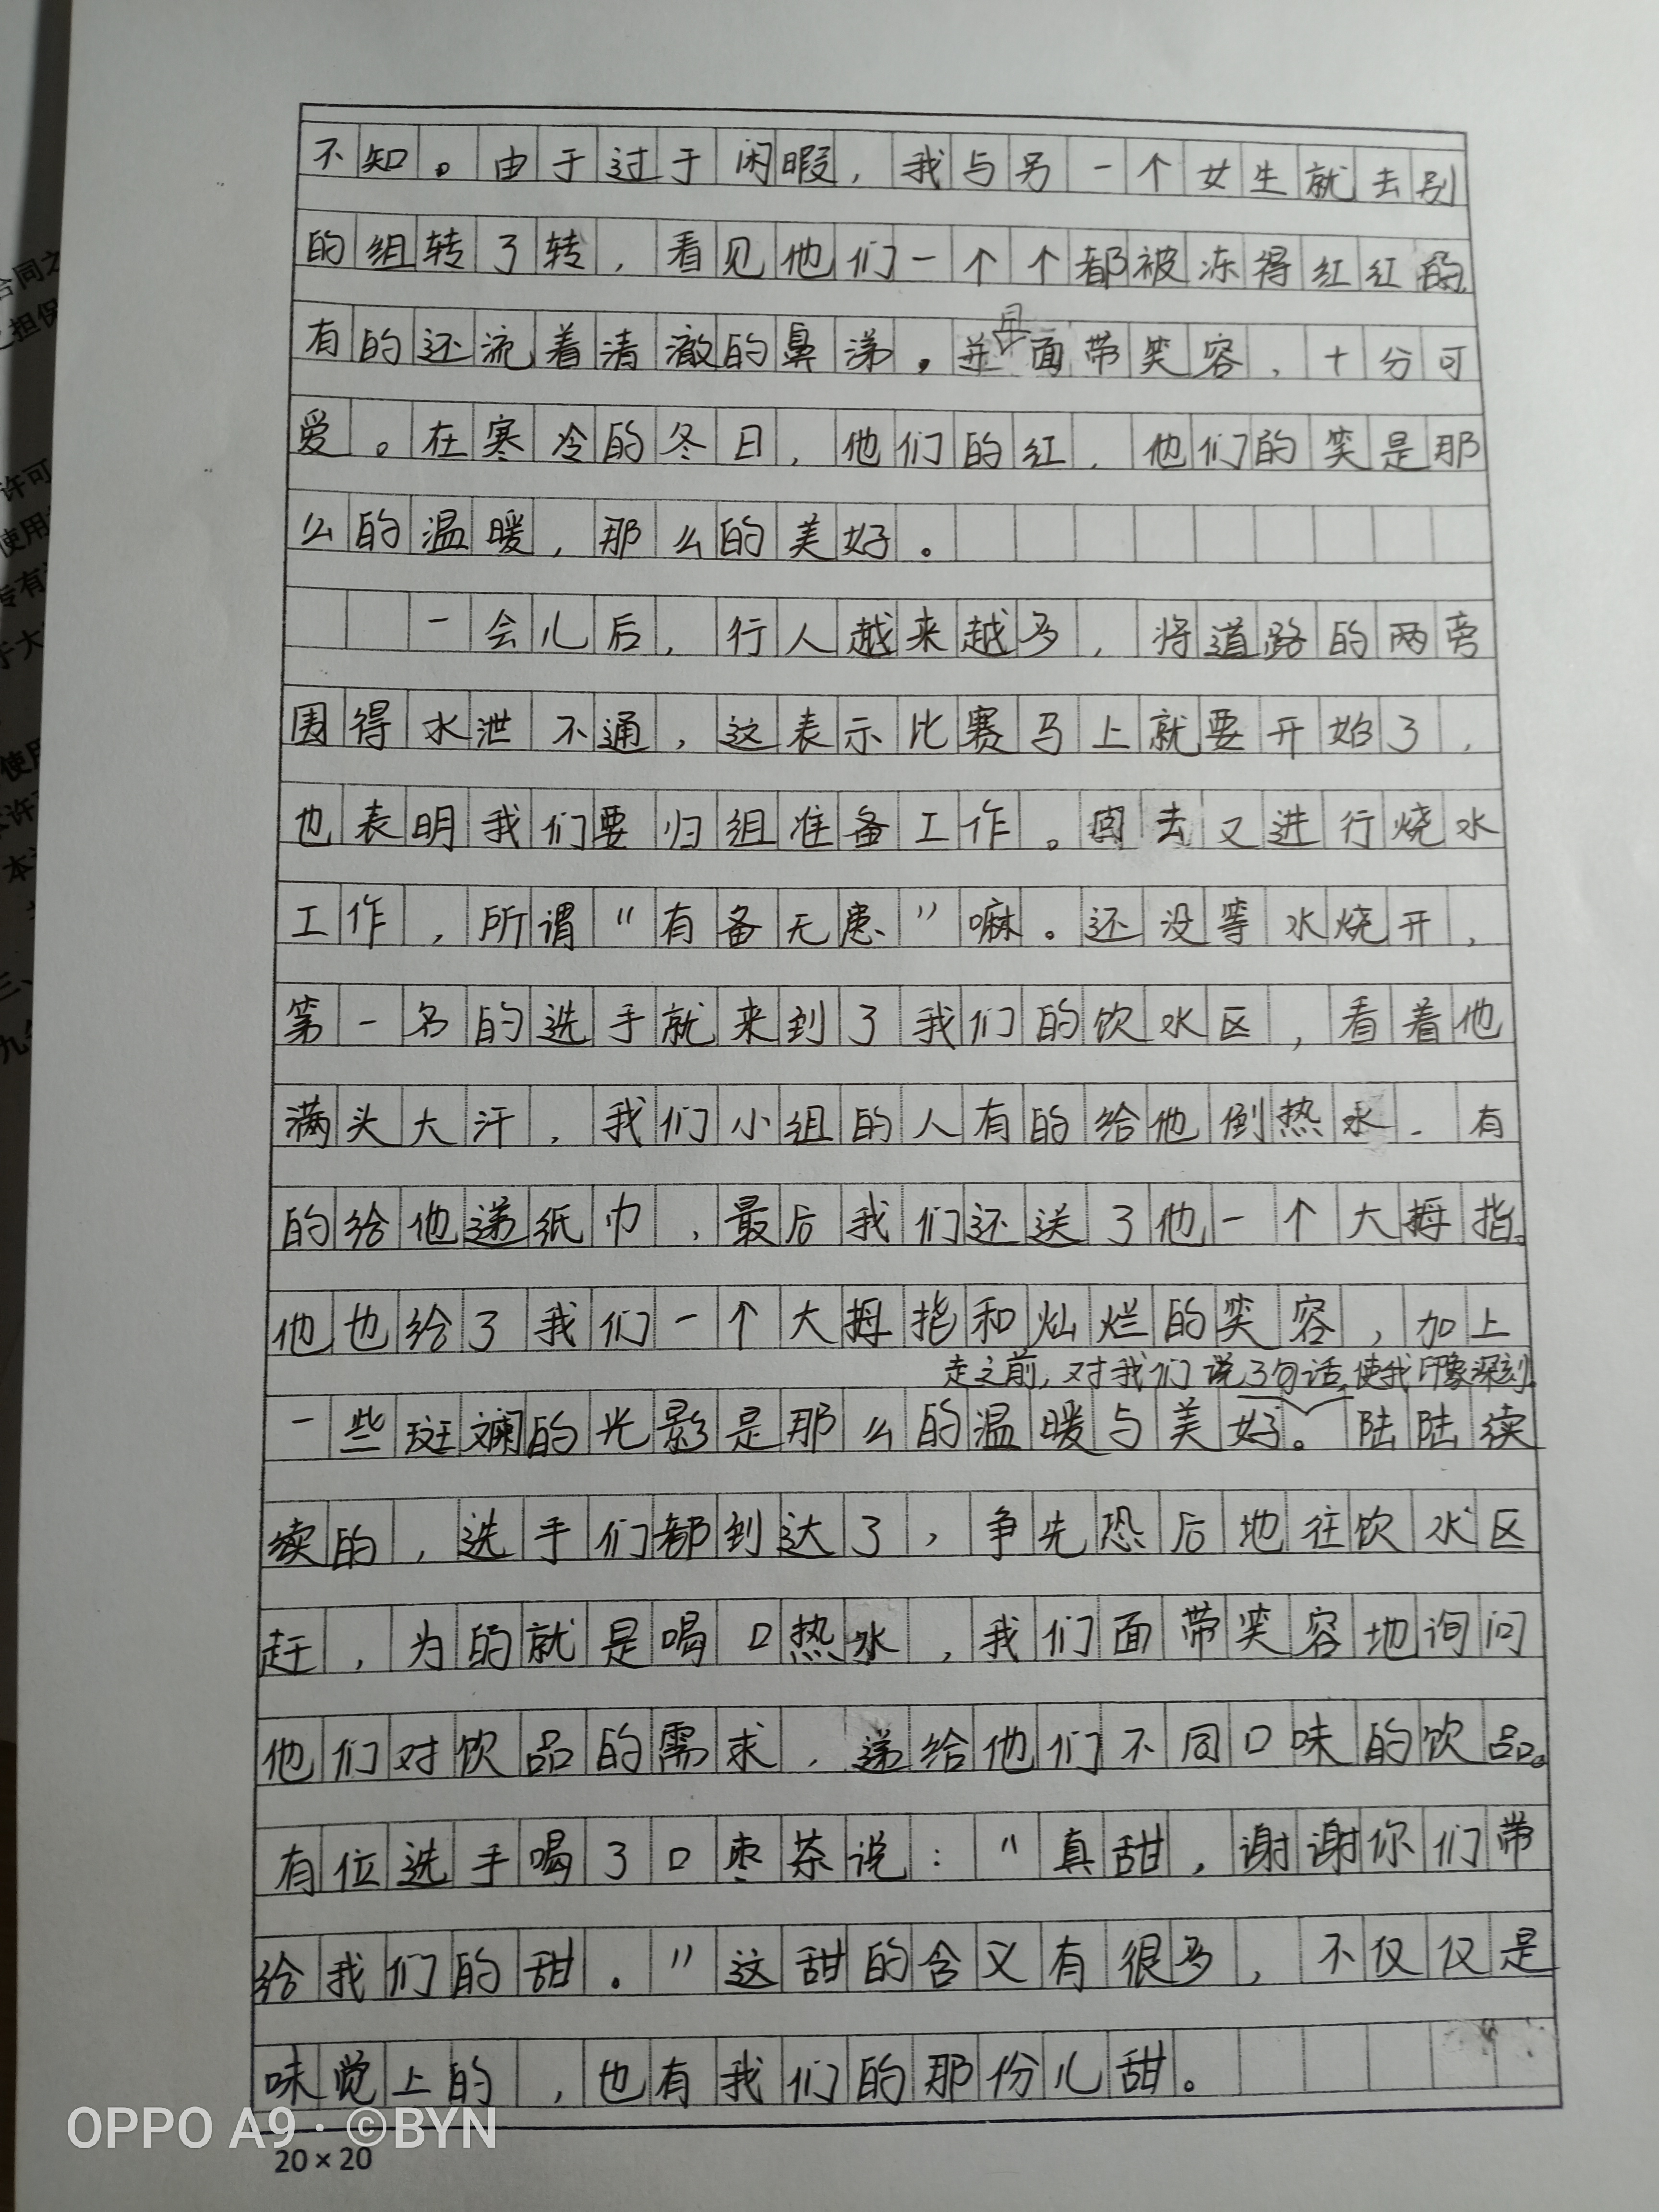 不知。由于过于闲暇，我与另一个女生就去别
的组转了转，看见他们一个个都被冻得红红的，
有的还流着清澈的鼻涕。并且面带笑容，十分可
爱。在寒冷的冬日，他们的红，他们的笑是那
么的温暖，那么的美好。
一会儿后，行人越来越多，将道路的两旁
围得水泄不通，这表示比赛马上就要开始了，
也表明我们要归组准备工作。回去又进行烧水
工作，所谓“有备无患”嘛。还没等水烧开，
第一名的选手就来到了我们的饮水区，看着他
满头大汗，我们小组的人有的给他倒热水，有
的给他递纸巾，最后我们还送了他一个大拇指。
他也给了我们一个大拇指和灿烂的笑容，加上
走之前，对我们说了句话，使我印象深刻。
一些斑斓的光影是那么的温暖与美好。陆陆续
续的，选手们都到达了，争先恐后地往饮水区
赶，为的就是喝口热水，我们面带笑容地询问
他们对饮品的需求，递给他们不同口味的饮品。
有位选手喝了口枣茶说：“真甜，谢谢你们带
给我们的甜。”这甜的含义有很多，不仅仅是
味觉上的，也有我们的那份儿甜。
OPPO A9 · ©BYN
20×20
合同之
之担保
许可
使用
专有
于大
使用
本许
本
三、
九